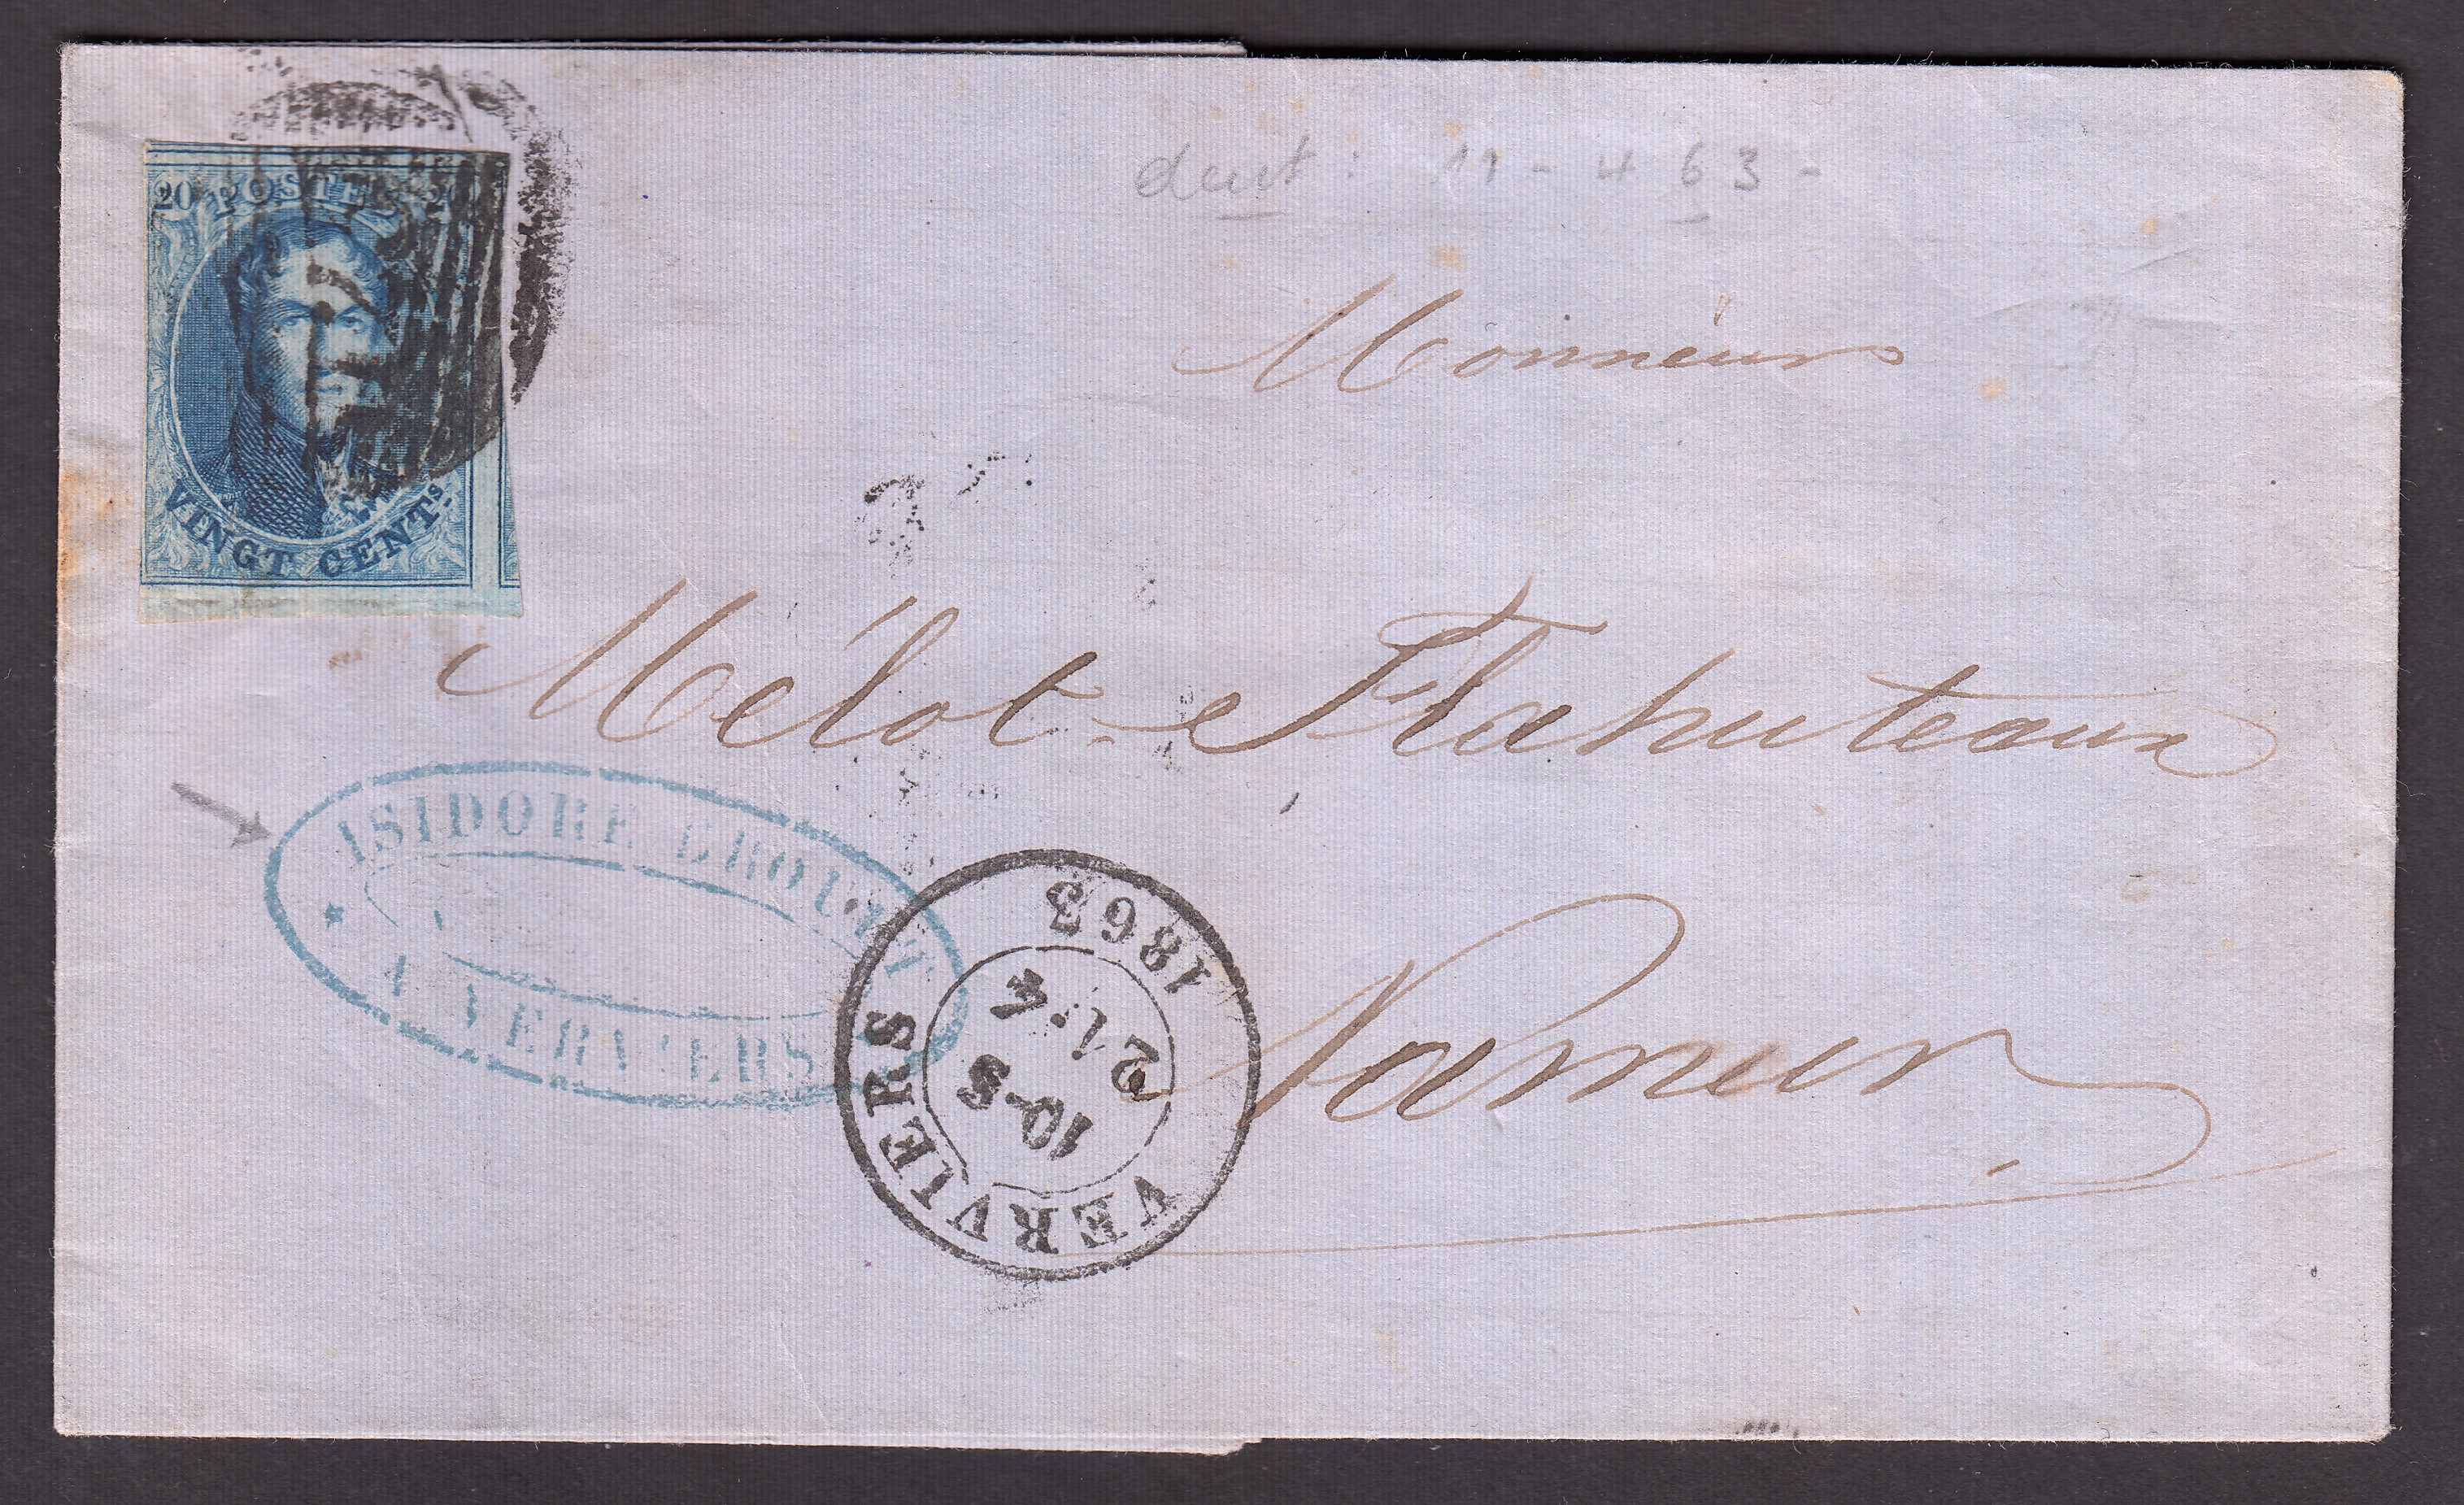 20 POSTES 20
VINGT CENTS.
11 - 4 63 -
Monsieur
Mélot-Flahuteaux
Namur
ISIDORE
A VERVIERS
VERVIERS
1863
21 · 4
10-S